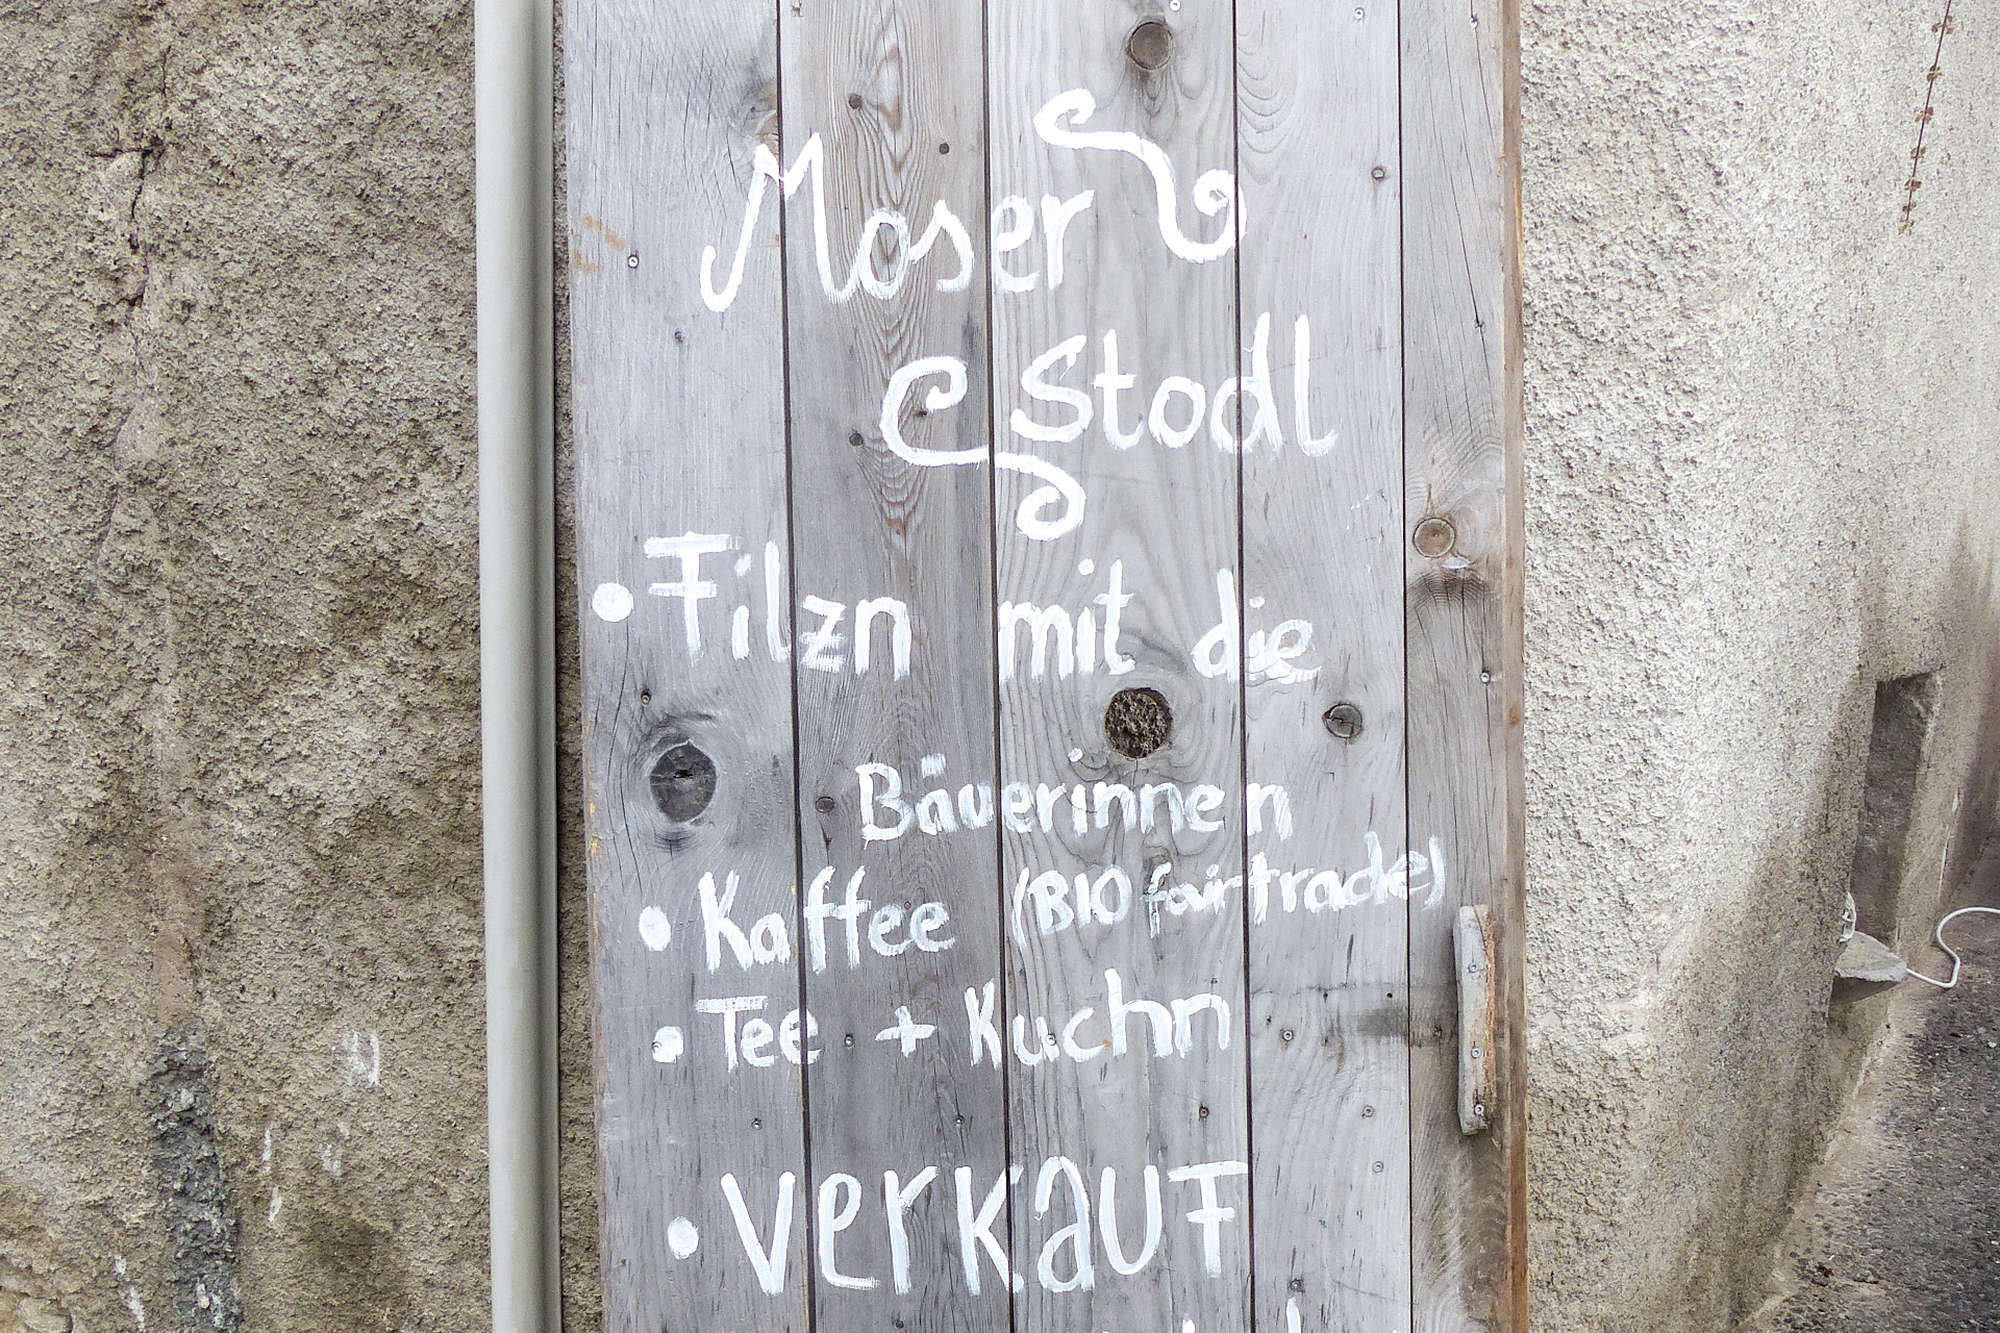 Moser
Stodl
• Filzn mit die
Bäuerinnen
• Kaffee (BIO fairtrade)
• Tee + Kuchn
• Verkauf